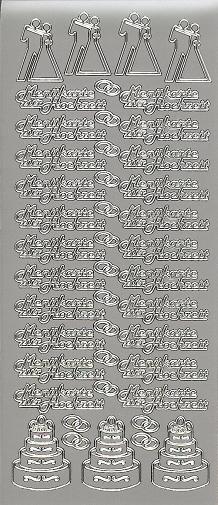 Menükarte
zur Hochzeit
Menükarte
zur Hochzeit
Menükarte
zur Hochzeit
Menükarte
zur Hochzeit
Menükarte
zur Hochzeit
Menükarte
zur Hochzeit
Menükarte
zur Hochzeit
Menükarte
zur Hochzeit
Menükarte
zur Hochzeit
Menükarte
zur Hochzeit
Menükarte
zur Hochzeit
Menükarte
zur Hochzeit
Menükarte
zur Hochzeit
Menükarte
zur Hochzeit
Menükarte
zur Hochzeit
Menükarte
zur Hochzeit
Menükarte
zur Hochzeit
Menükarte
zur Hochzeit
Menükarte
zur Hochzeit
Menükarte
zur Hochzeit
Menükarte
zur Hochzeit
Menükarte
zur Hochzeit